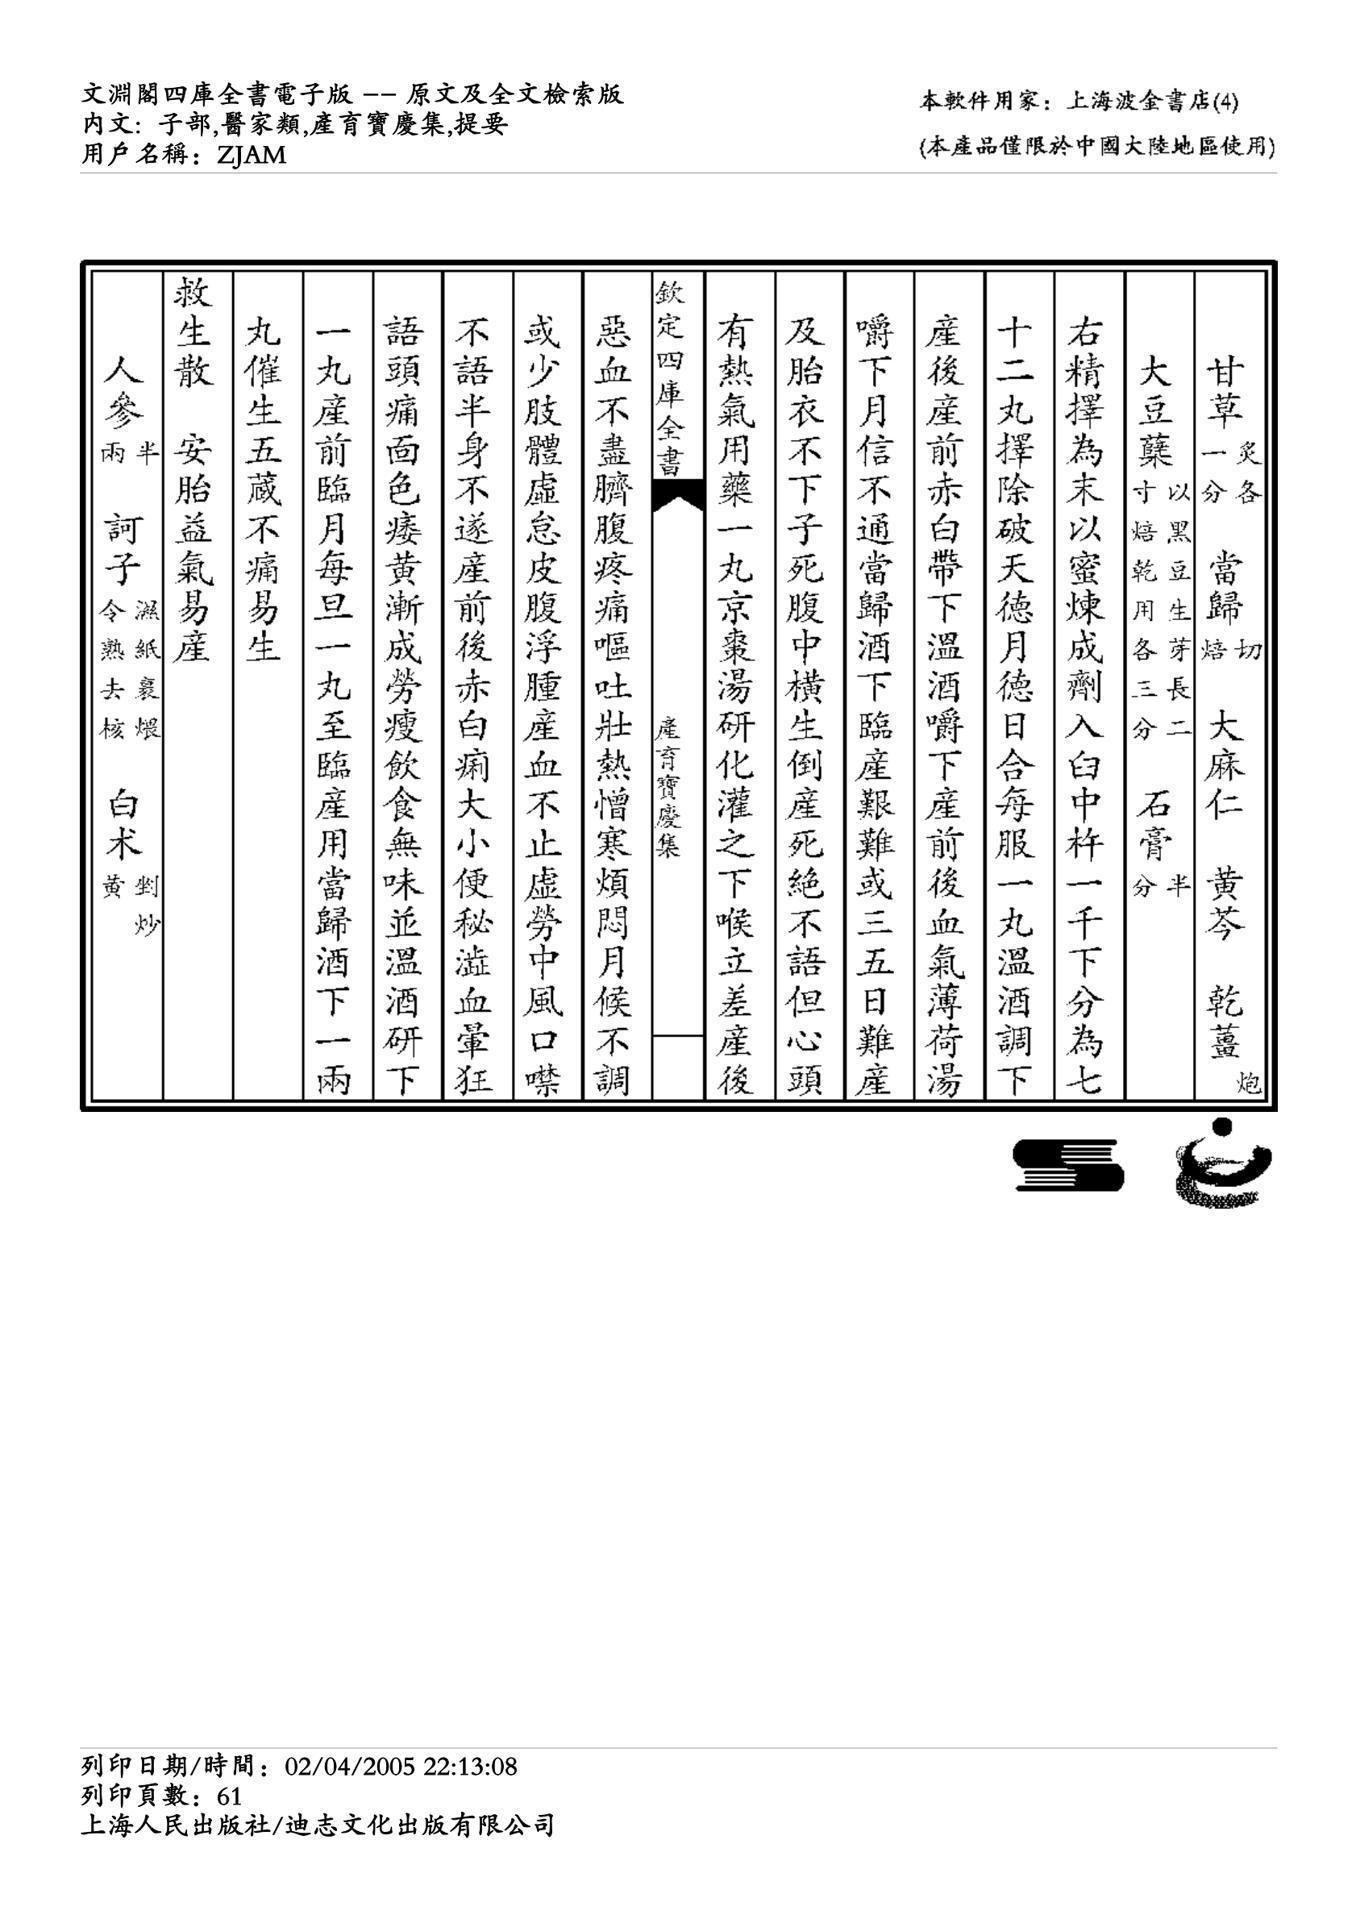 文淵閣四庫全書電子版 -- 原文及全文檢索版
内文：子部,醫家類,產育寶慶集,提要
用戶名稱：ZJAM
本軟件用家：上海波金書店(4)
(本產品僅限於中國大陸地區使用)
甘草炙各一分　當歸切焙　大麻仁　黄芩　乾薑炮
大豆蘗以黑豆生芽長二寸焙乾用各三分　石膏半分
右精擇為末以蜜煉成劑入臼中杵一千下分為七
十二丸擇除破天德月德日合每服一丸溫酒調下
産後産前赤白帶下溫酒嚼下産前後血氣薄荷湯
嚼下月信不通當歸酒下臨産艱難或三五日難産
及胎衣不下子死腹中橫生倒産死絶不語但心頭
有熱氣用藥一丸京棗湯研化灌之下喉立差産後
欽定四庫全書
産育寶慶集
惡血不盡臍腹疼痛嘔吐壯熱憎寒煩悶月候不調
或少肢體虛怠皮腹浮腫産血不止虛勞中風口噤
不語半身不遂産前後赤白痢大小便秘澁血暈狂
語頭痛面色痿黄漸成勞瘦飲食無味並溫酒研下
一丸産前臨月每旦一丸至臨産用當歸酒下一兩
丸催生五蔵不痛易生
救生散　安胎益氣易産
人參半兩　訶子濕紙裹煨令熟去核　白术剉炒黄
列印日期/時間：02/04/2005 22:13:08
列印頁數：61
上海人民出版社/迪志文化出版有限公司